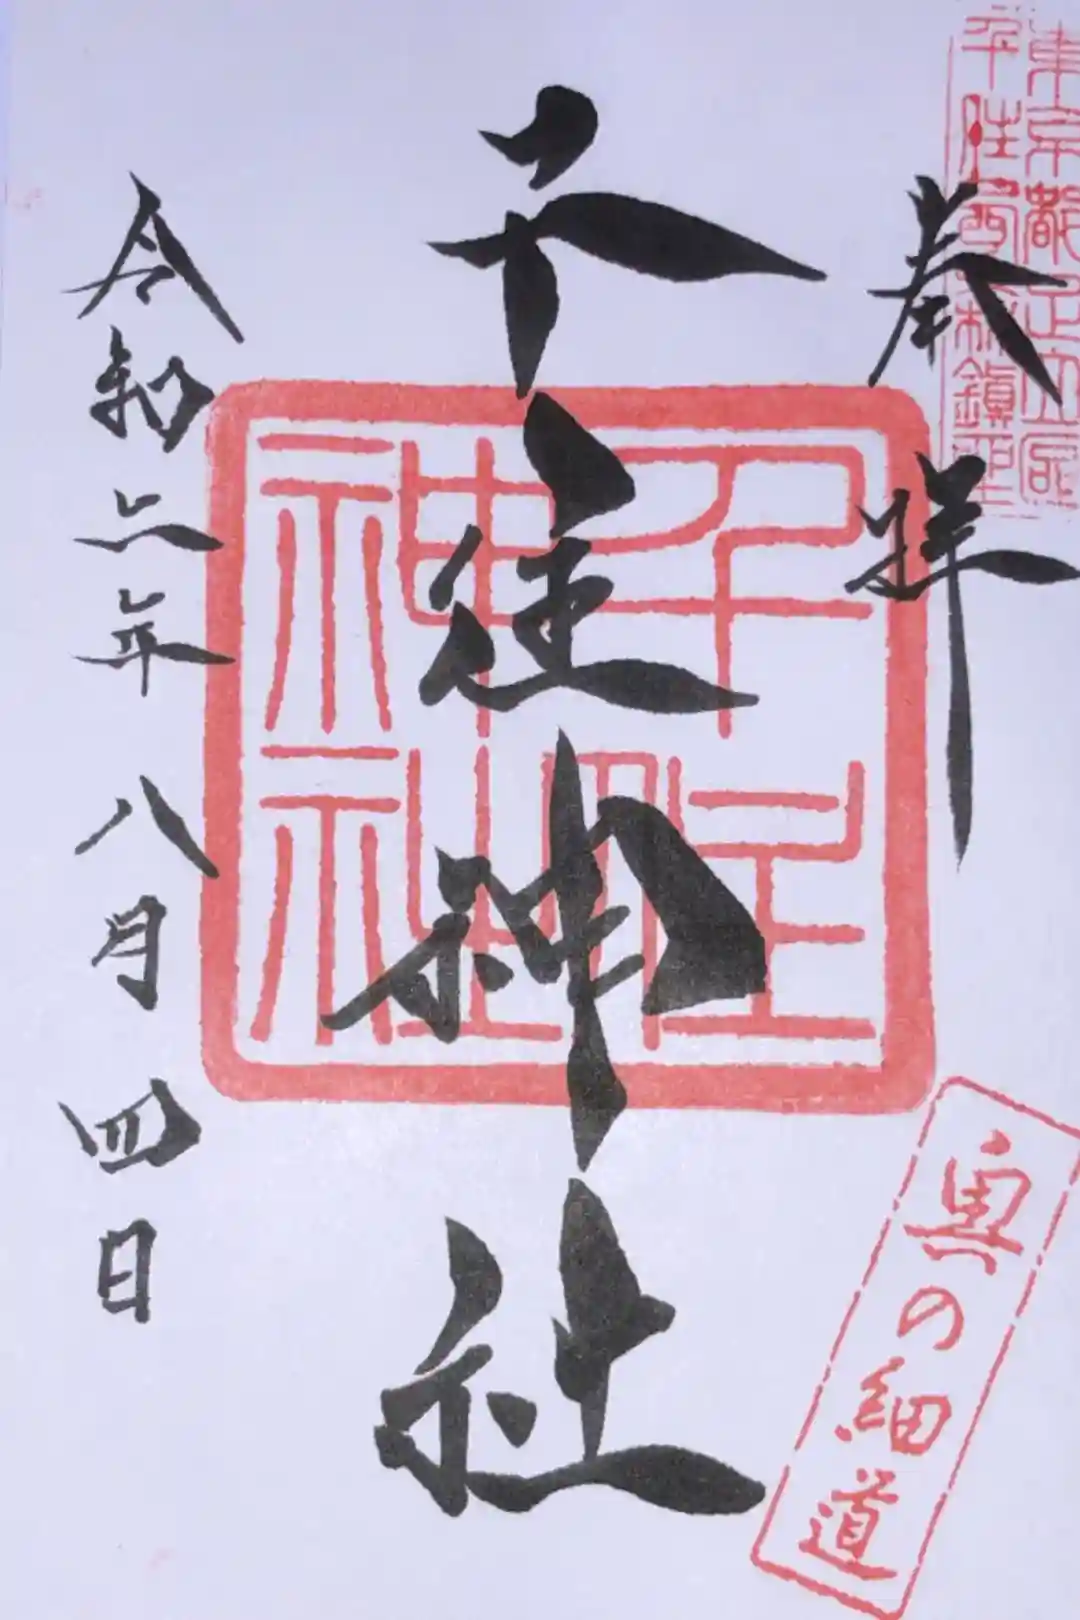 東京都足立区
千住西森鎮座
奉拝
千住神社
千住
神社
令和六年八月四日
奥の細道